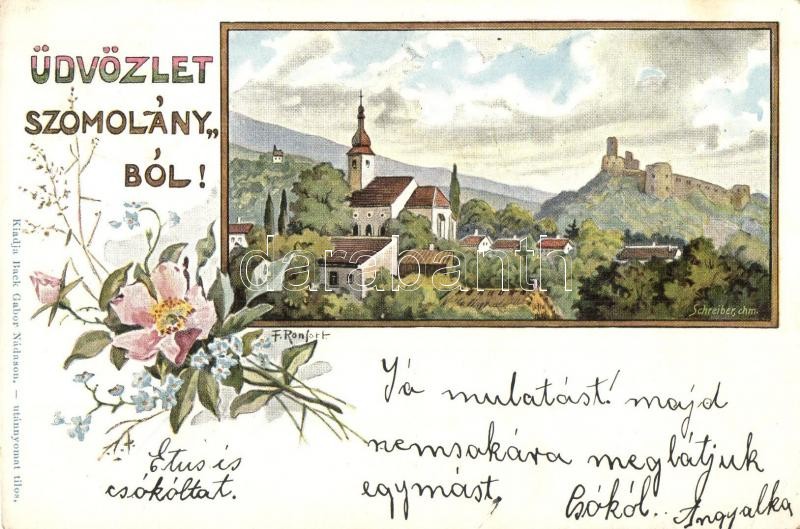 ÜDVÖZLET
SZOMOLÁNY„
BÓL!
Kiadja Back Gabor Nádason. — utánnyomat tilos.
darabanth
Schreiber, chm.
F. Ronfort
Já mulatást! majd
nemsokára meglátjuk
egymást,
Csókól.. Angyalka
Etus is
csókóltat.